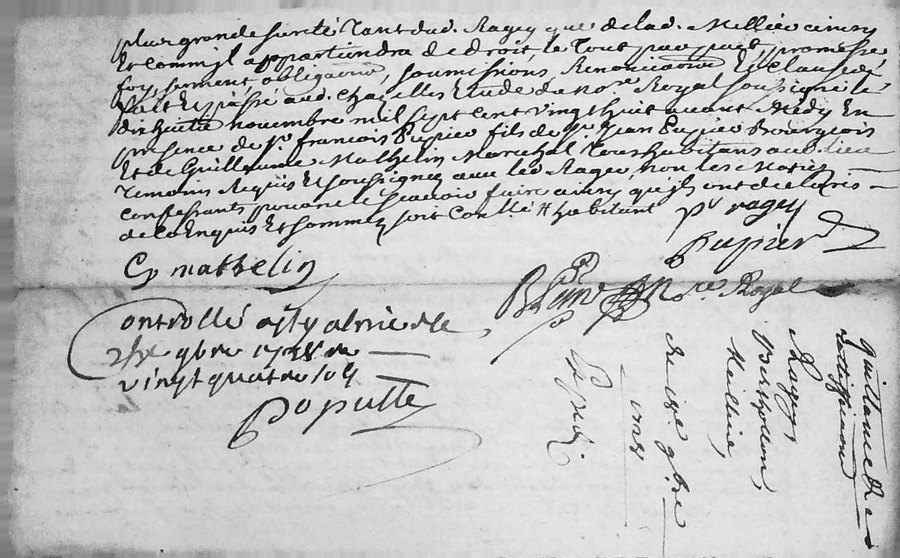 plus grande sureté tant dud. Ragey que de lad. Meillier ainsy
Et comm'il appartiendra de droit, le tout par
foy, serment, obligaõns, soumissions, Renonciaõns Et clauses
fait Et passé aud. Chazelles Etude du no.re Royal soussigné le
dixhuitie novembre mil sept cent vingt huit avant Midy En
presence de s.r francois Pupier fils de s.r Jean Pupier Bourgeois
Et de Guillaume Mathelin Marechal Tous habitans aud. lieu
Temoins Requis Et soussignes avec led. Ragey non les
confessants pour ne le scavoir faire ainsy qu'ils ont declaris
de ce Enquis Et sommes soit Conllé # habitant
p ragey
Pupier
G mathelin
no.re Royal
Controllé a st galmier le
9bre 1728 re
vingt quatre sols
Poputte
Expedi
de 18e 9bre
1728
Ragey,
Berthollon,
Meillier,
quittance &